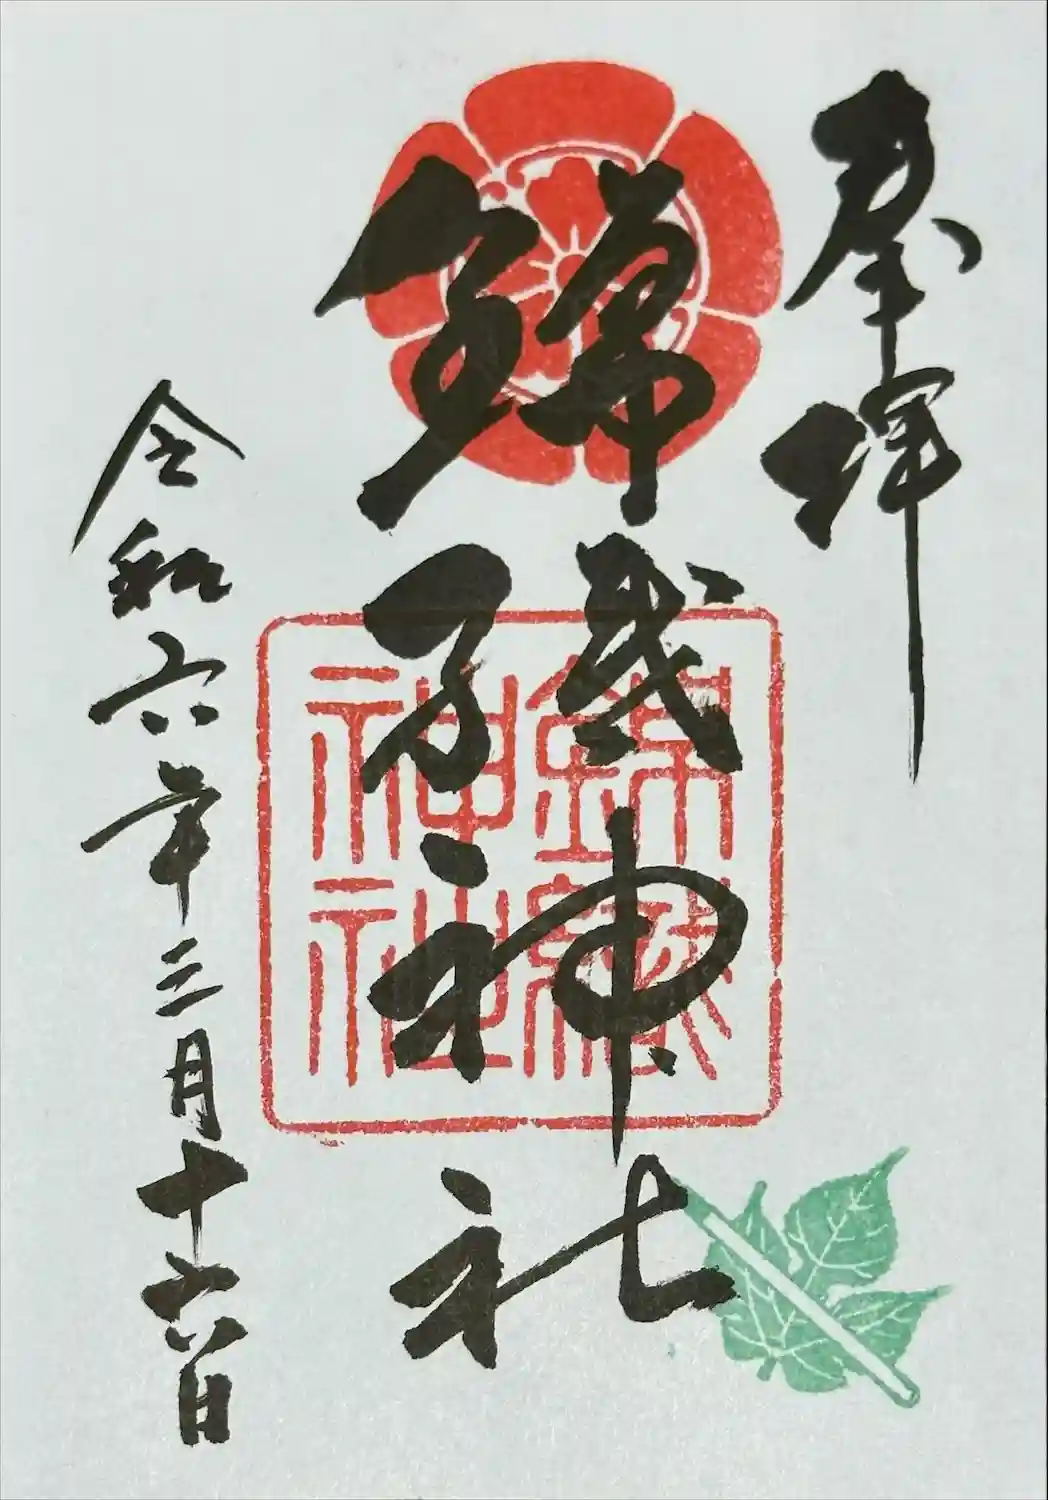 奉拝
錦織神社
令和六年三月十六日
錦織
神社